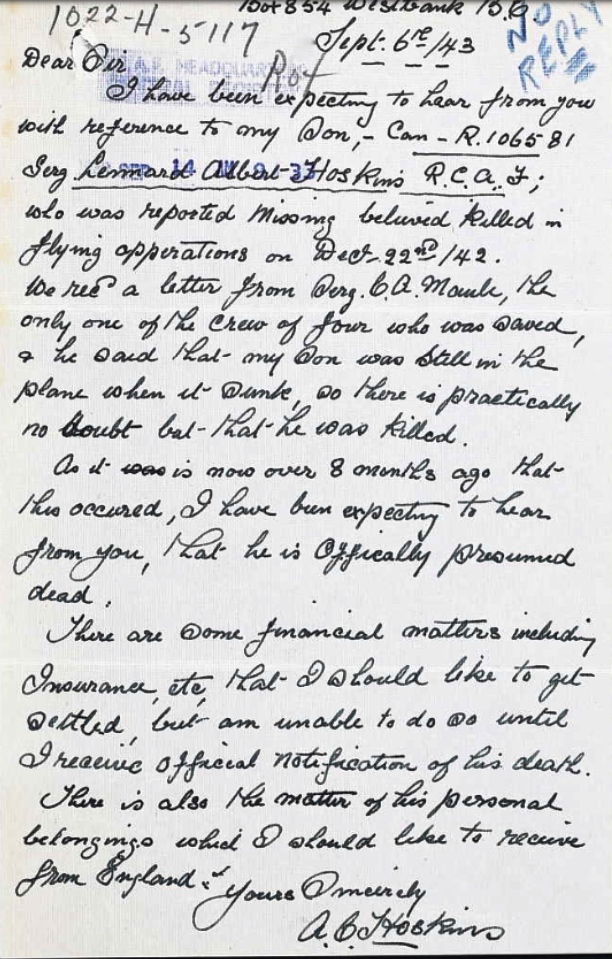 Box 854 Westbank B.C
1022-H-5117
Sept. 6th/43
NO
REPLY
Dear Sir
A.F. HEADQUARTERS
I have been expecting to hear from you
with reference to my Son,- Can - R.106581
Serg Lennard Albert Hoskins R.C.A.F;
SEP 14
who was reported Missing beluved killed in
flying opperations on Dect 22nd/42.
We recd a letter from Serg. C.A. the
only one of the crew of four who was saved,
& he said that my Son was still in the
plane when it sunk, so there is practically
no doubt but that he was killed.
As it was is now over 8 months ago that
this occured, I have been expecting to hear
from you, that he is Offically presumed
dead.
There are some financial matters including
Insurance, etc, that I should like to get
settled, but am unable to do so until
I receive official notification of his death.
There is also the matter of his personal
belongings which I should like to receive
from England.
Yours Sincirely
A.C. Hoskins